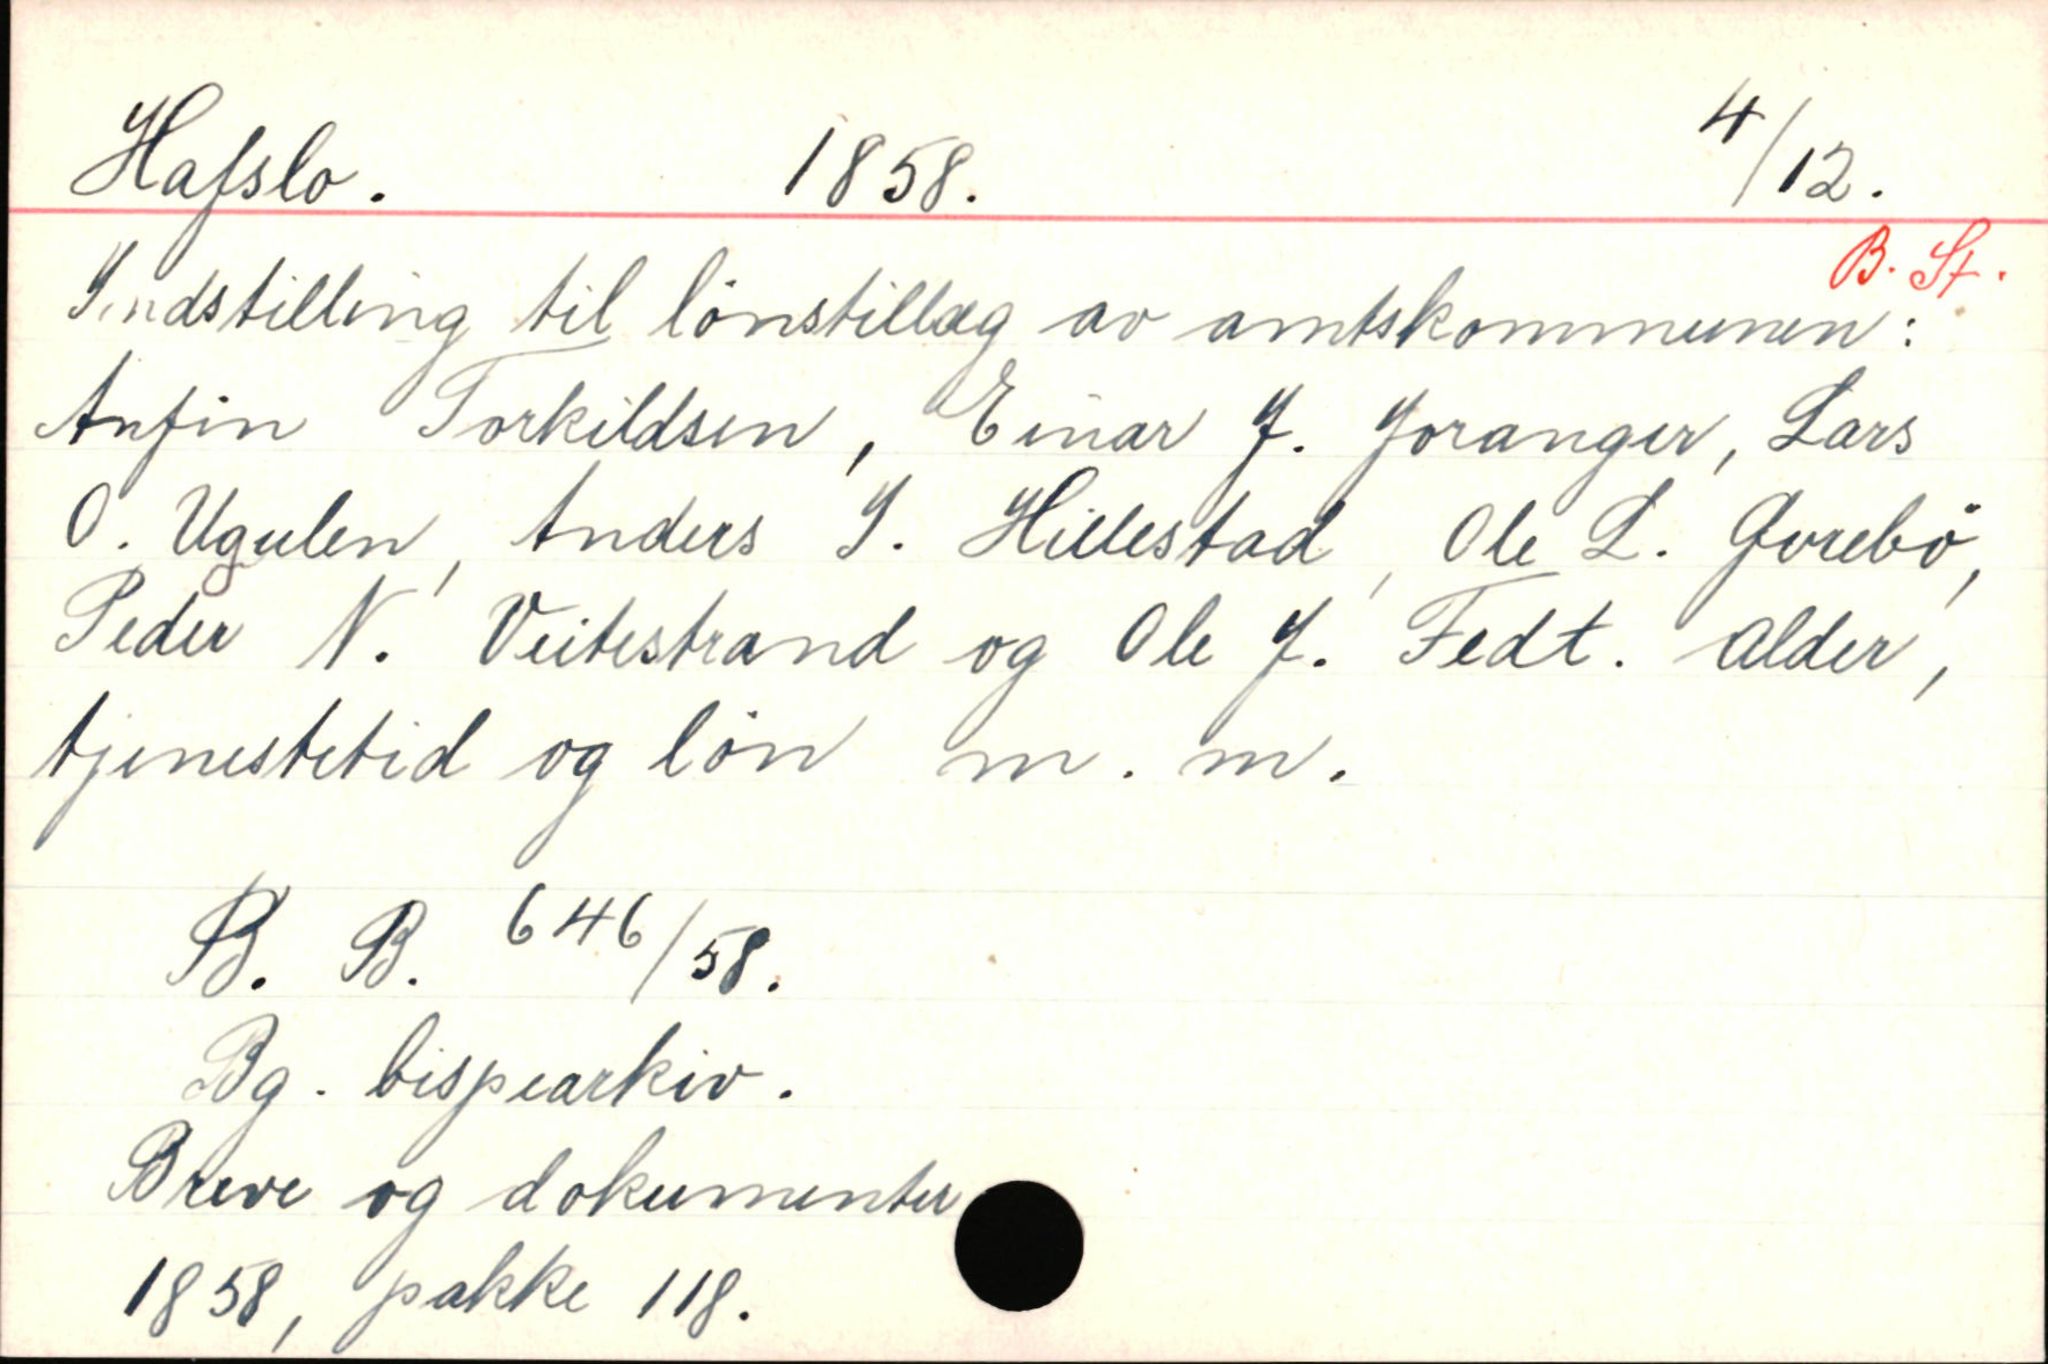 Hafslo. 1858. 4/12.
B. St.
Indstilling til lönstillæg av amtskommunen:
Anfin Torkildsen, Einar J. Joranger, Lars
O. Ugulen, Anders I. Hillestad, Ole L. Gorebö,
Peder N. Veitestrand og Ole J. Fedt. Alder,
tjenestetid og lön m. m.
B. B. 646/58.
Bg. bispearkiv.
Breve og dokumenter
1858, pakke 118.